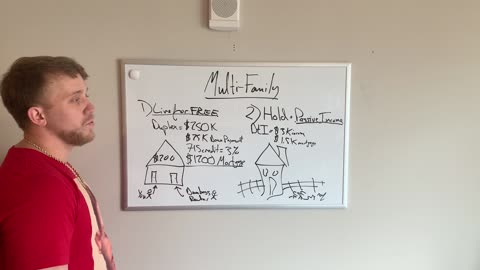 Multi-Family
1) Live for FREE
Duplex = $250K
$7.5K Down Payment
715 credit = 3%
$1200 Mortgage
$1200
2) Hold = Passive Income
$3K
$1.5K mortgage